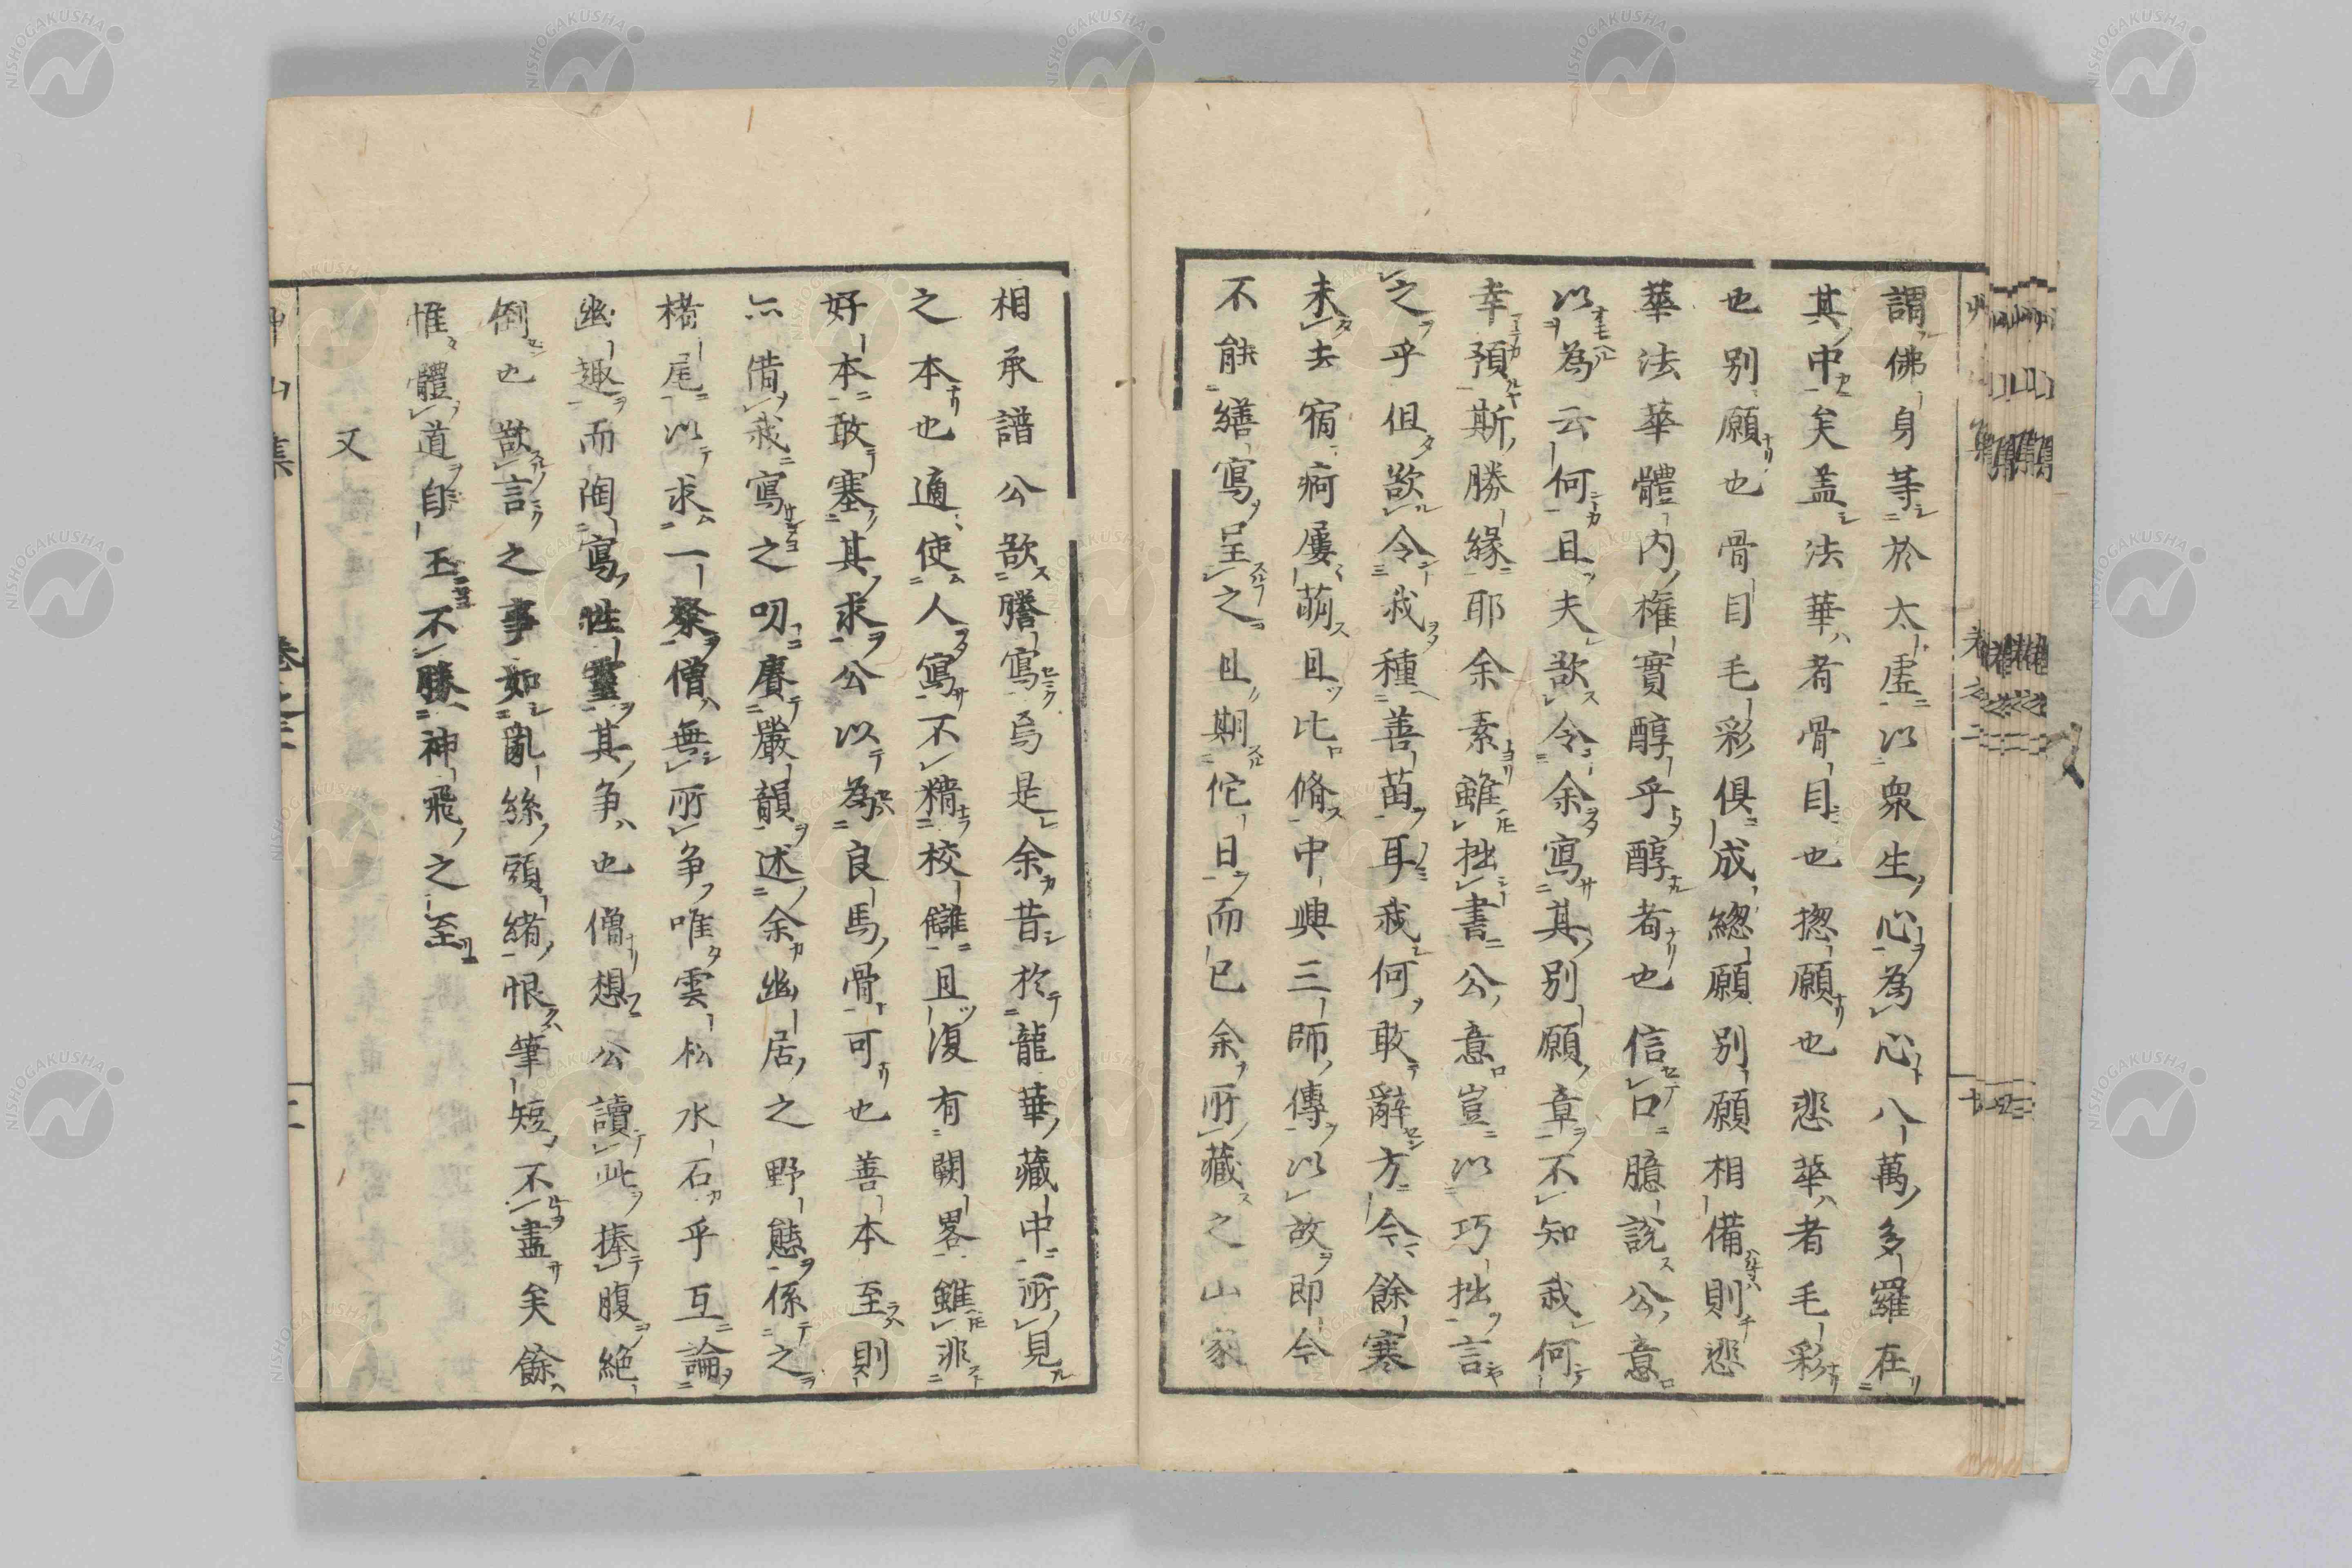 謂佛身等於太虛以衆生心為心八萬多羅在
其中矣盖法華者骨目也揔願也悲華者毛彩
也別願也骨目毛彩俱成緫願別願相備則悲
華法華體内權實醇乎醇者也信口臆說公意
以為云何且夫欲令余寫其別願章不知我何
幸預斯勝緣耶余素雖拙書公意豈以巧拙言
之乎但欲令我種善苗耳我何敢辭方今餘寒
未去宿痾屢萌且比脩中興三師傳以故即今
不能繕寫呈之且期佗日而已余所藏之山家
相承譜公欲謄寫焉是余昔於龍華藏中所見
之本也適使人寫不精校讎且復有闕畧雖非
好本敢塞其求公以為良馬骨可也善本至則
亦備我寫之叨賡嚴韻述余幽居之野態係之
楮尾以求一粲僧無所爭唯雲松水石乎互論
幽趣而陶寫性靈其爭也僧想公讀此捧腹絕
倒也欲言之事如亂絲頭緒恨筆短不盡矣餘
惟體道自玉不勝神飛之至
又